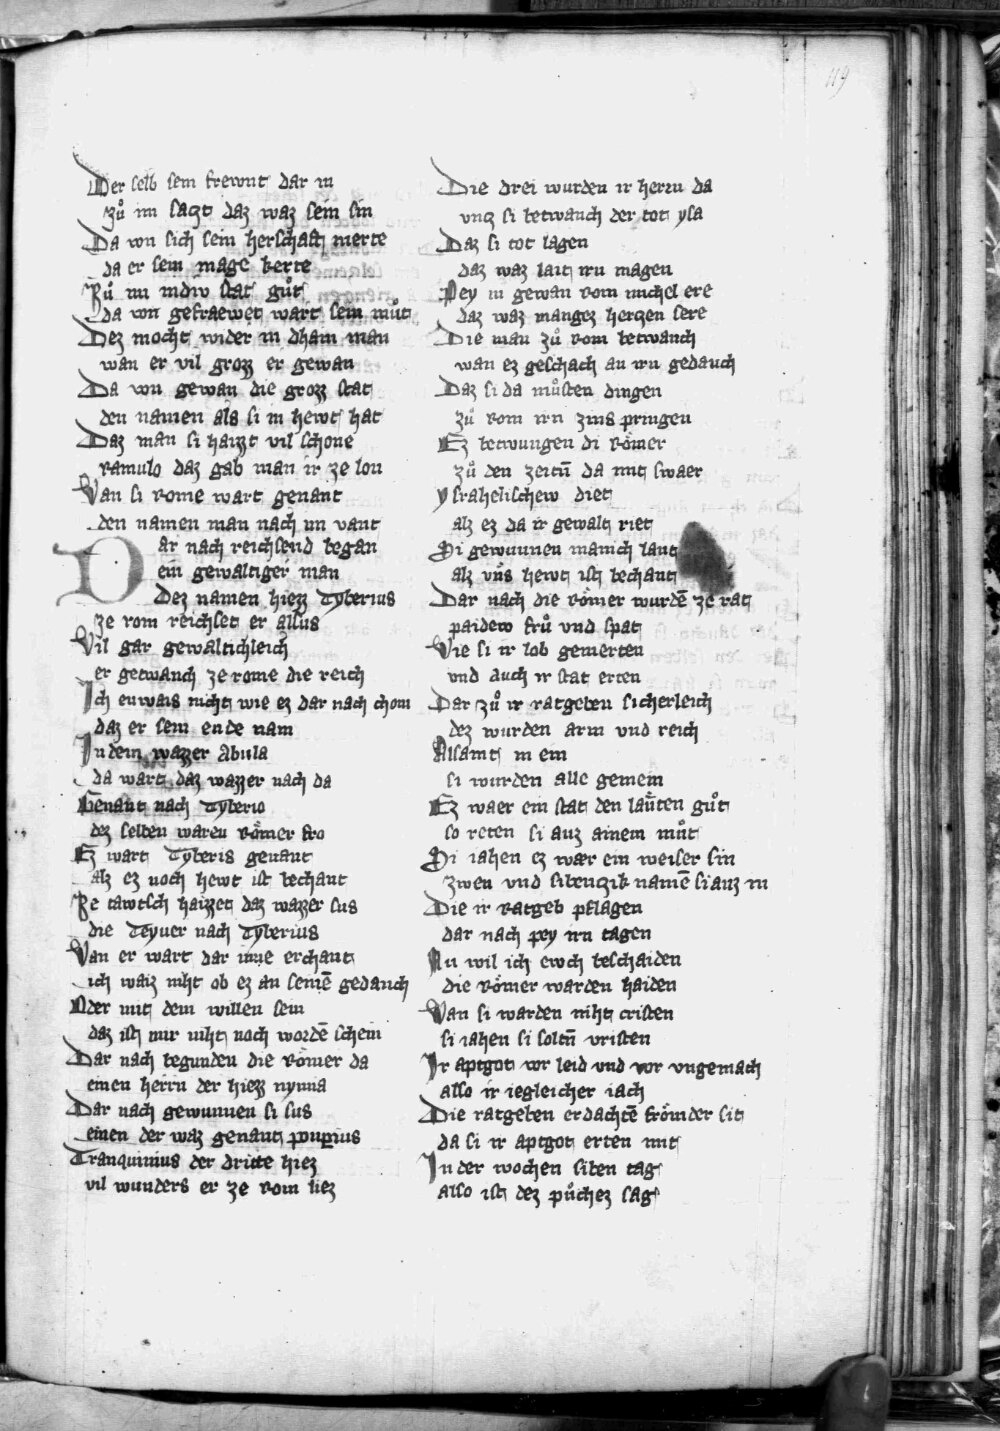 119
Der selb sein frewnt dar in
zuͦ im sagt daz waz sein sin
Da von sich sein herschaft merte
da er sein mage kerte
Zuͦ im in div stat guͦt
da von gefraewet wart sein muͦt
Dez mocht wider in dhain man
wan er vil grozz er gewan
Da von gewan die grozz stat
den namen als si in hewt hat
Daz man si haizzt vil schone
ramulo daz gab man ir ze lon
Van si Rome wart genant
den namen man nach im vant
Dar nach reichsend began
ein gewaltiger man
Dez namen hiezz Tyberius
ze rom reichset er allus
Vil gar gewaltichleich
er getwanch ze rome die reich
Ich enwais nicht wie ez dar nach chom
daz er sein ende nam
In dem wazzer Abula
da wart daz wazzer nach da
Genant nach Tyberio
dez selben waren Roͤmer fro
Ez wart Tyberis genant
alz ez noch hewt ist bechant
Ze tawtsch haizzet daz wazzer sus
die Teyuer nach Tyberius
Van er wart dar inne erchant
ich waiz niht ob ez an seinē gedanch
Oder mit dem willen sein
daz ist mir niht noch wordē schein
Dar nach begunden die Roͤmer da
einen herrn der hiezz nynna
Dar nach gewunnen si sus
einen der waz genant pompius
Tranquinius der dritte hiez
vil wunders er ze Rom liez
Die drei wurden ir herrn da
vncz si betwanch der tot ysa
Daz si tot lagen
daz waz lait irn magen
Pey in gewan Rom michel ere
daz waz mangez herczen sere
Die man zuͦ Rom betwanch
wan ez geschach an irn gedanch
Daz si da muͦsten dingen
zuͦ Rom irn zins pringen
Ez betwungen di Roͤmer
zuͦ den zeitn̄ da mit swaer
ysrahelischew diet
alz ez da ir gewalt riet
Si gewunnen manich lant
alz vns hewt ist bechant
Dar nach die Roͤmer wurdē ze rat
paidew fruͦ vnd spat
Wie si ir lob gemerten
vnd auch ir stat erten
Dar zuͦ ir ratgeben sicherleich
dez wurden arm vnd reich
Allsamt in ein
si wurden alle gemein
Ez waer ein stat den laͤuten guͦt
so reten si auz ainem muͦt
Si iahen ez wær ein weiser sin
zwen vnd sibenczik namē si auz in
Die ir ratgeb pflagen
dar nach pey irn tagen
Nu wil ich ewch beschaiden
die Roͤmer warden haiden
Van si warden niht cristen
si iahen si soltn̄ vristen
Ir aptgot vor leid vnd vor vngemach
also ir iegleicher iach
Die ratgeben erdachtē froͤmder sit
da si ir aptgot erten mit
In der wochen siben tag
also ist dez puͦchez sag